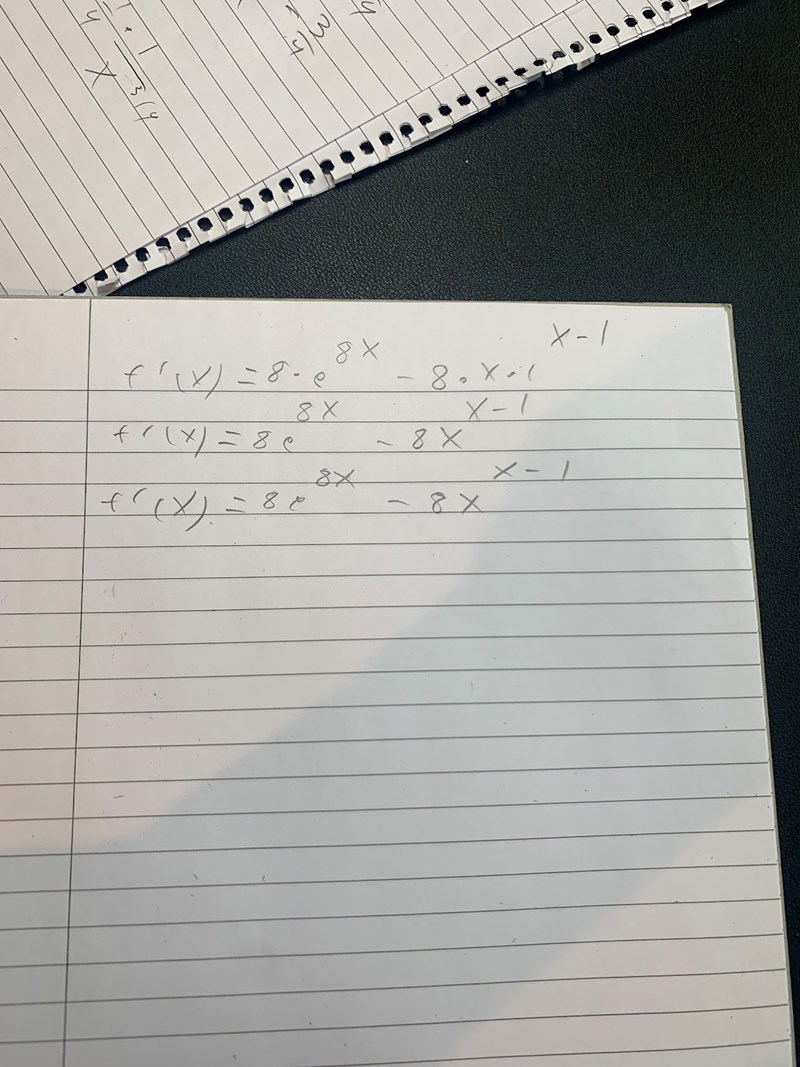 f'(x) = 8 · e^{8x} - 8 · x · 1^{x-1}
f'(x) = 8e^{8x} - 8x^{x-1}
f'(x) = 8e^{8x} - 8x^{x-1}